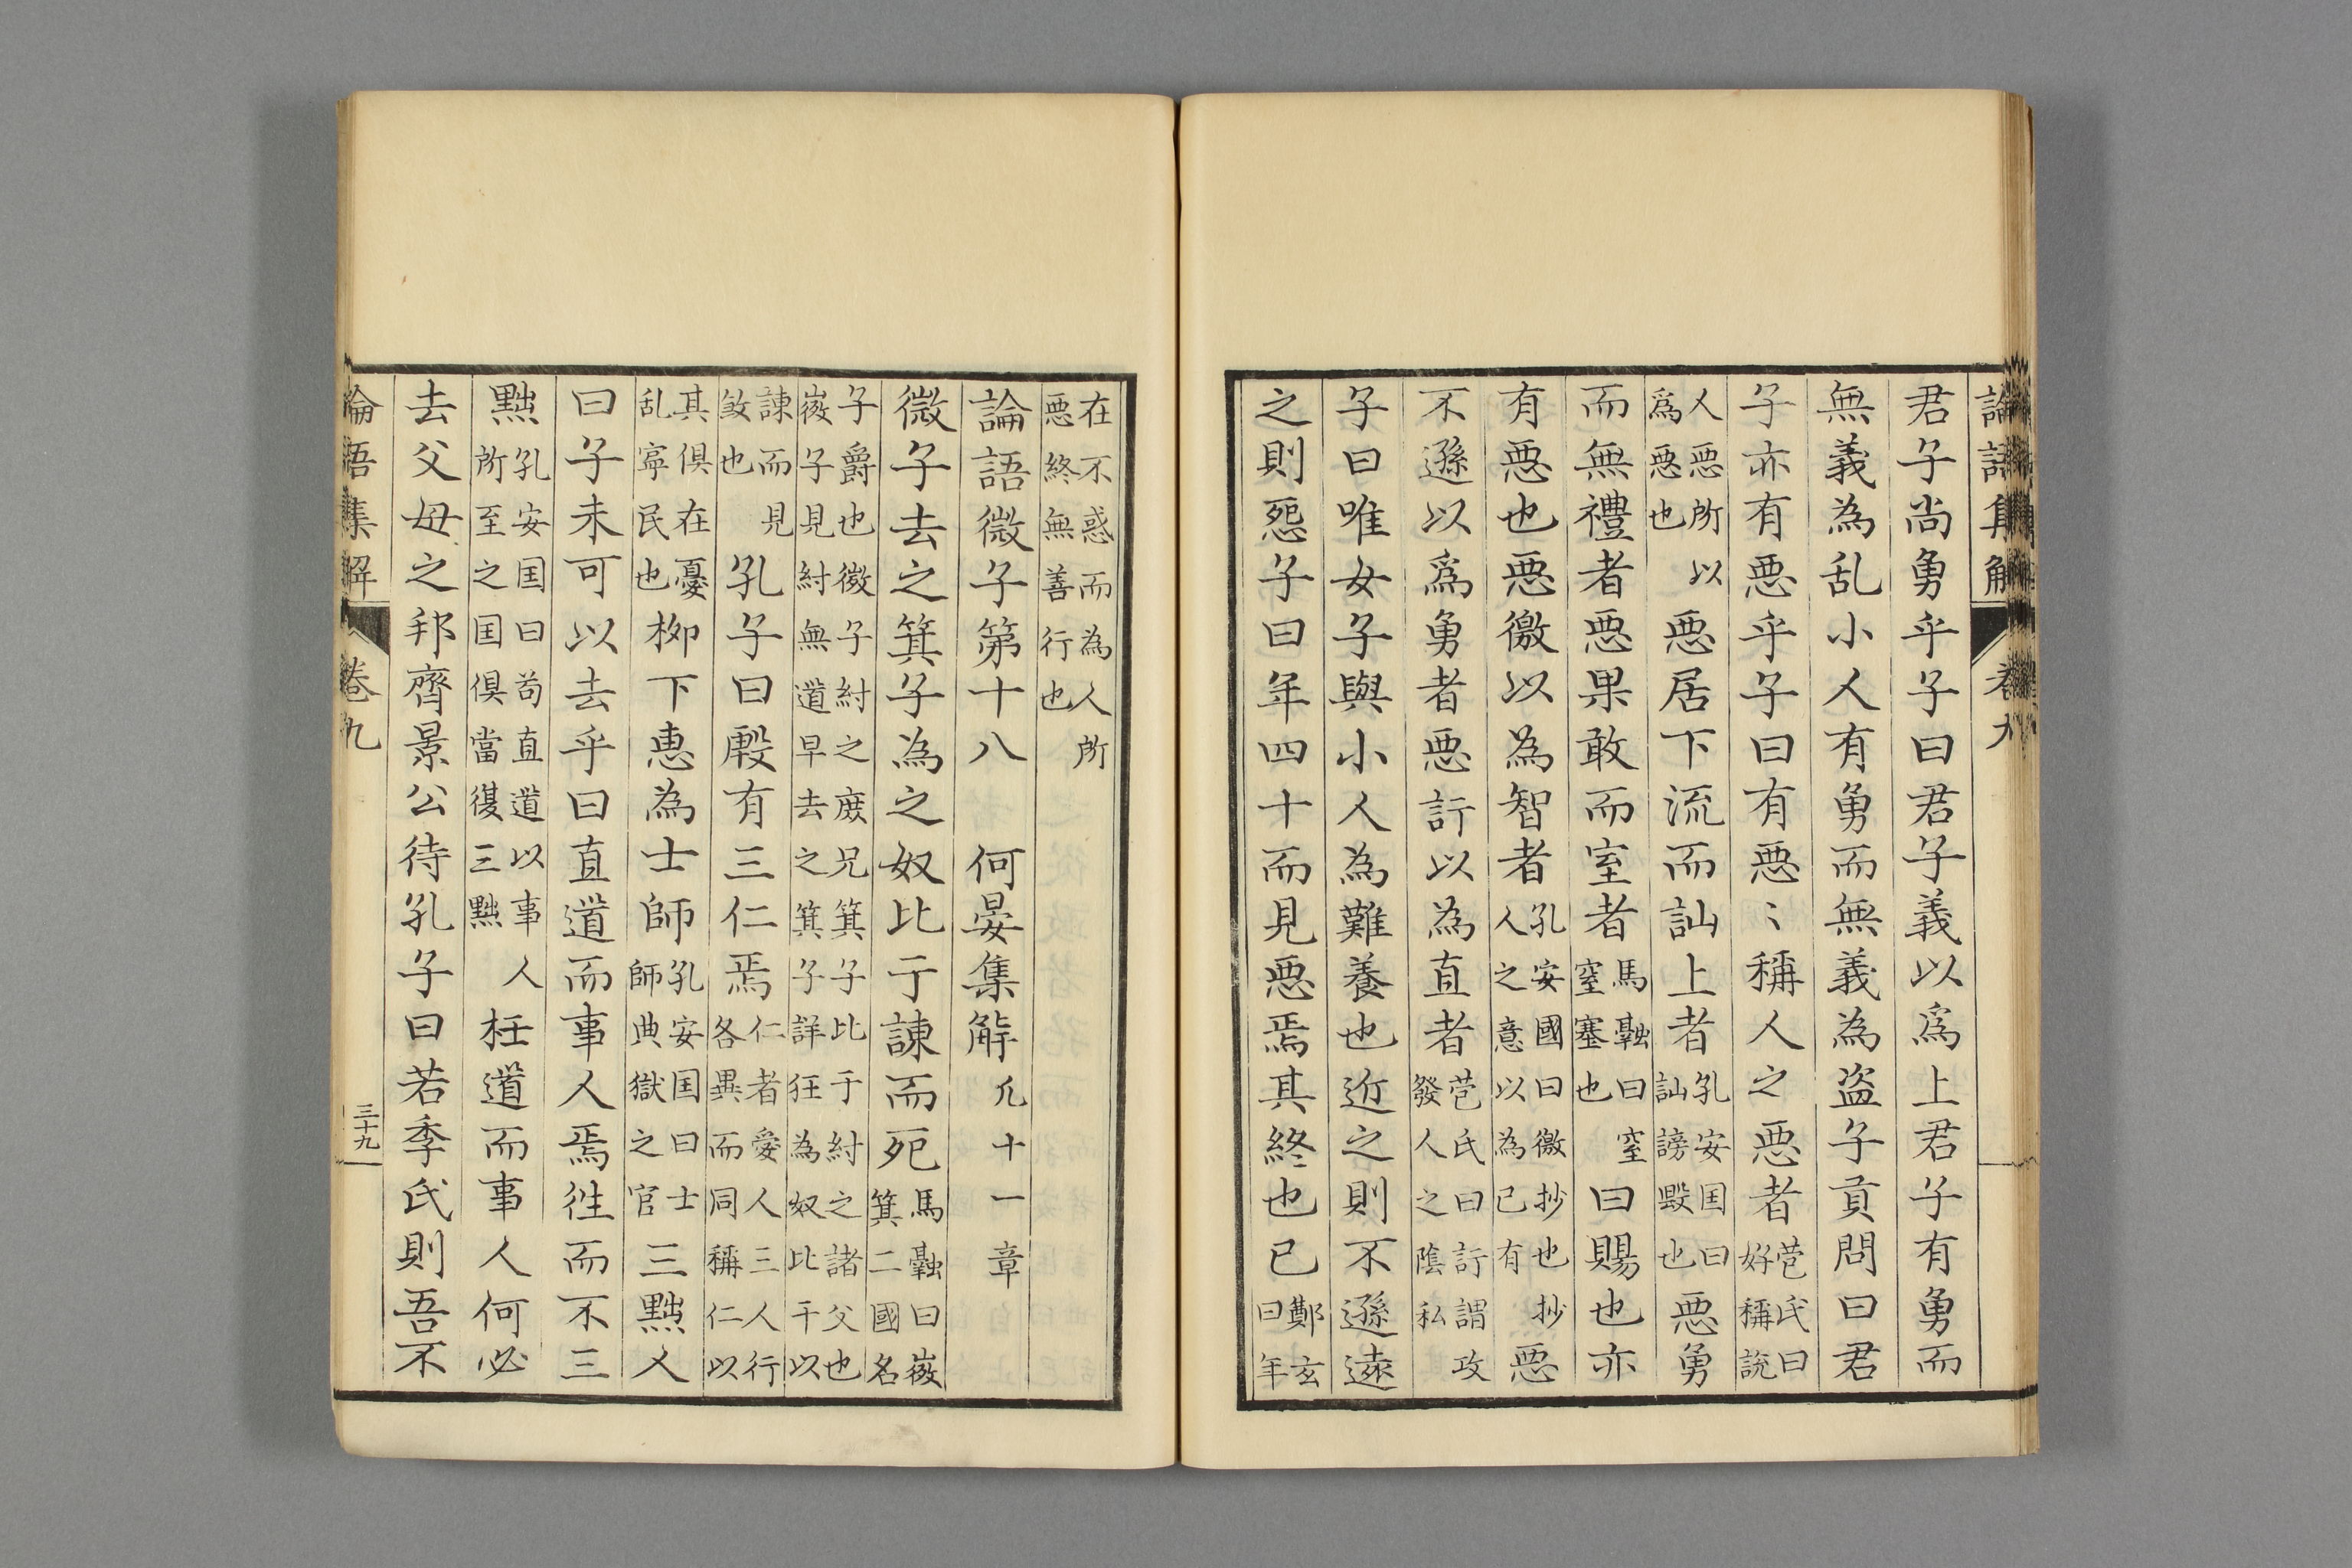 論語集解 卷九
君子尚勇乎子曰君子義以爲上君子有勇而
無義為乱小人有勇而無義為盗子貢問曰君
子亦有惡乎子曰有惡〻稱人之惡者苞氏曰好稱說
人惡所以爲惡也惡居下流而訕上者孔安囯曰訕謗毀也惡勇
而無禮者惡果敢而窒者馬融曰窒窒塞也曰賜也亦
有惡也惡徼以為智者孔安國曰徼抄也抄人之意以為己有惡
不遜以爲勇者惡訐以為直者苞氏曰訐謂攻發人之陰私
子曰唯女子與小人為難養也近之則不遜遠
之則怨子曰年四十而見惡焉其終也已鄭玄曰年
在不惑而為人所惡終無善行也
論語微子第十八 何晏集解 凡十一章
微子去之箕子為之奴比于諫而死馬融曰微箕二國名
子爵也微子紂之庶兄箕子比于紂之諸父也微子見紂無道早去之箕子詳狂為奴比干以
諫而見煞也孔子曰殷有三仁焉仁者愛人三人行各異而同稱仁以
其俱在憂乱寧民也柳下惠為士師孔安囯曰士師典獄之官三黜人
曰子未可以去乎曰直道而事人焉往而不三
黜孔安囯曰苟直道以事人所至之囯俱當復三黜枉道而事人何必
去父母之邦齊景公待孔子曰若季氏則吾不
論語集解 卷九 三十九